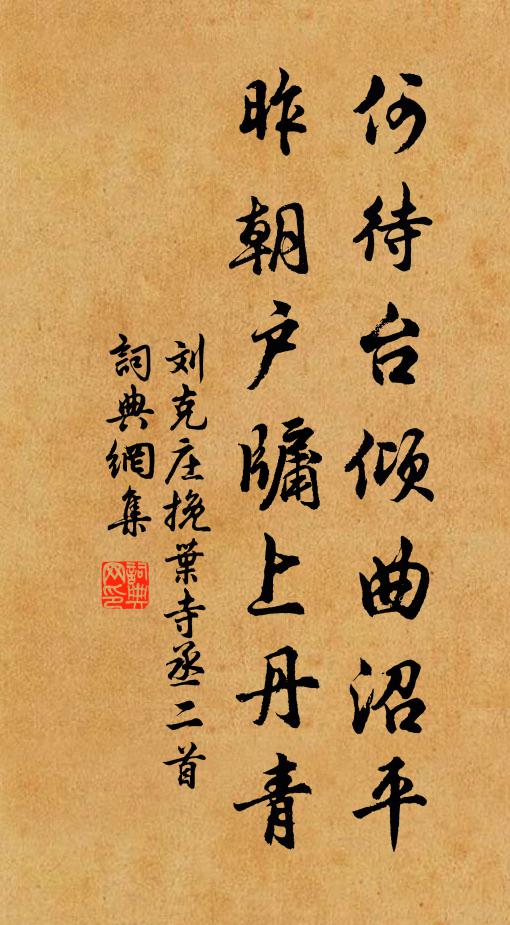 何待台倾曲沼平
昨朝户牖上丹青
刘克庄挽葉寺丞二首
詞典網集
詞典网印